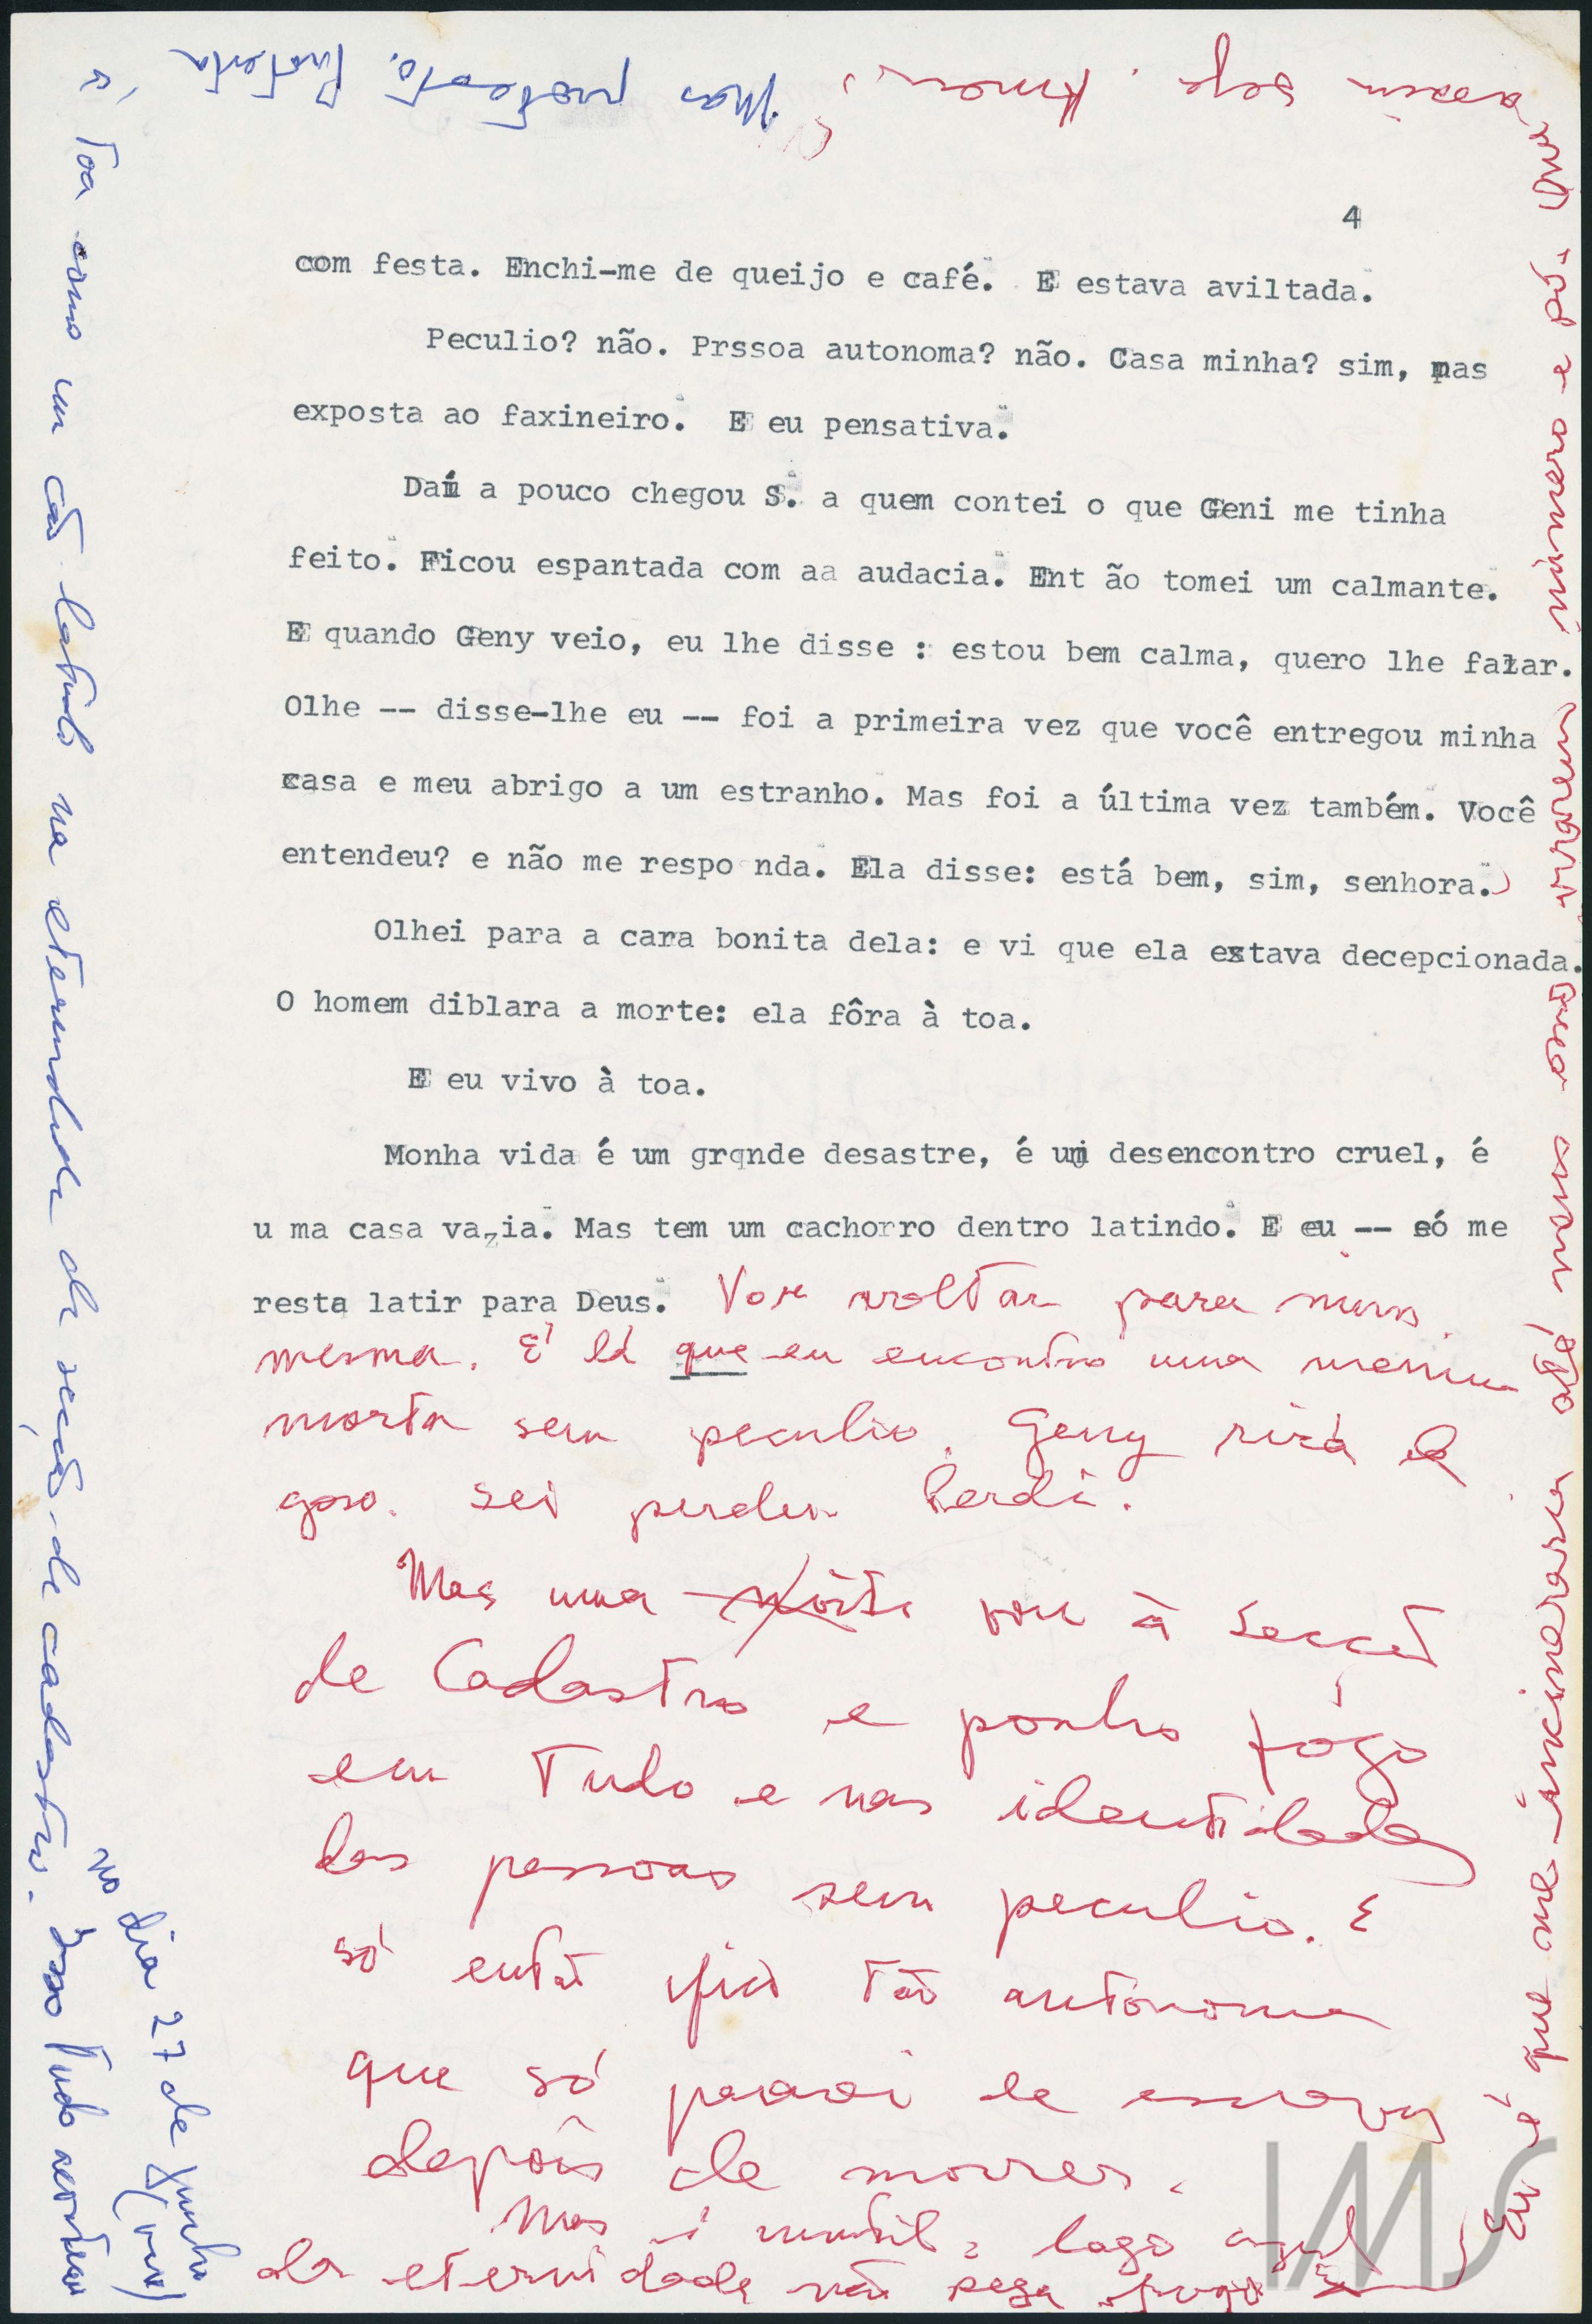 4
com festa. Enchi-me de queijo e café. E estava aviltada.
Peculio? não. Prssoa autonoma? não. Casa minha? sim, mas
exposta ao faxineiro. E eu pensativa.
Daí a pouco chegou S. a quem contei o que Geni me tinha
feito. Ficou espantada com aa audacia. Ent ão tomei um calmante.
E quando Geny veio, eu lhe disse : estou bem calma, quero lhe falar.
Olhe -- disse-lhe eu -- foi a primeira vez que você entregou minha
casa e meu abrigo a um estranho. Mas foi a última vez também. Você
entendeu? e não me respo nda. Ela disse: está bem, sim, senhora.
Olhei para a cara bonita dela: e vi que ela estava decepcionada.
O homem diblara a morte: ela fôra à toa.
E eu vivo à toa.
Monha vida é um grqnde desastre, é um desencontro cruel, é
u ma casa vazia. Mas tem um cachorro dentro latindo. E eu -- só me
resta latir para Deus. Vou voltar para mim
mesma. É lá que eu encontro uma menina
morta sem peculio. Geny rirá de
goso. Sei perder. Perdi.
Mas uma noite vou à Secção
de Cadastro e ponho fôgo
em tudo e nas identidades
das pessoas sem peculio. E
só então fico tão autônoma
que só pararei de escrever
depois de morrer.
Mas é inutil, lago azul
da eternidade não pega fogo
Eu é que me incineraria até meus ossos virarem número e pó. Que
assim seja. Amen.
Mas protesto. Protesto
à toa como um cão latindo na eternidade da seção de cadastro. Isso tudo aconteceu
no dia 27 de Junho